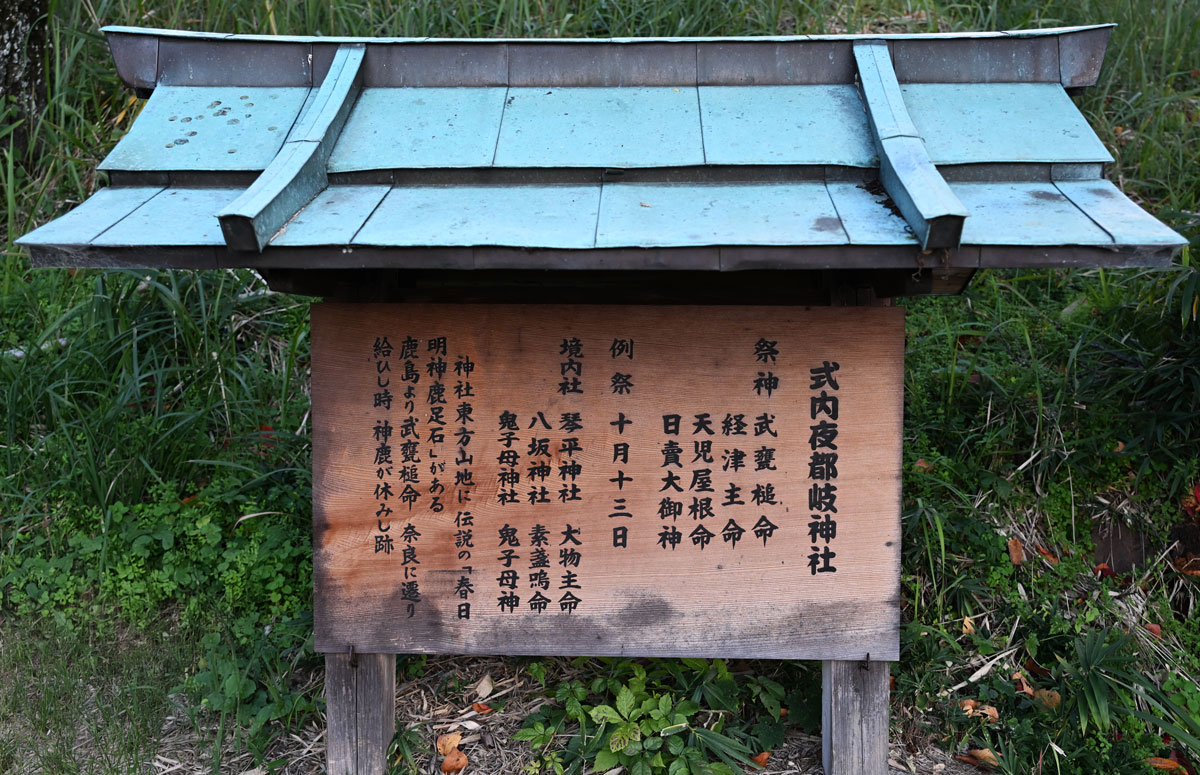 式内夜都岐神社
祭神 武甕槌命
経津主命
天児屋根命
日賣大御神
例祭 十月十三日
境内社 琴平神社 大物主命
八坂神社 素盞嗚命
鬼子母神社 鬼子母神
神社東方山地に伝説の「春日
明神鹿足石」がある
鹿島より武甕槌命 奈良に遷り
給ひし時 神鹿が休みし跡